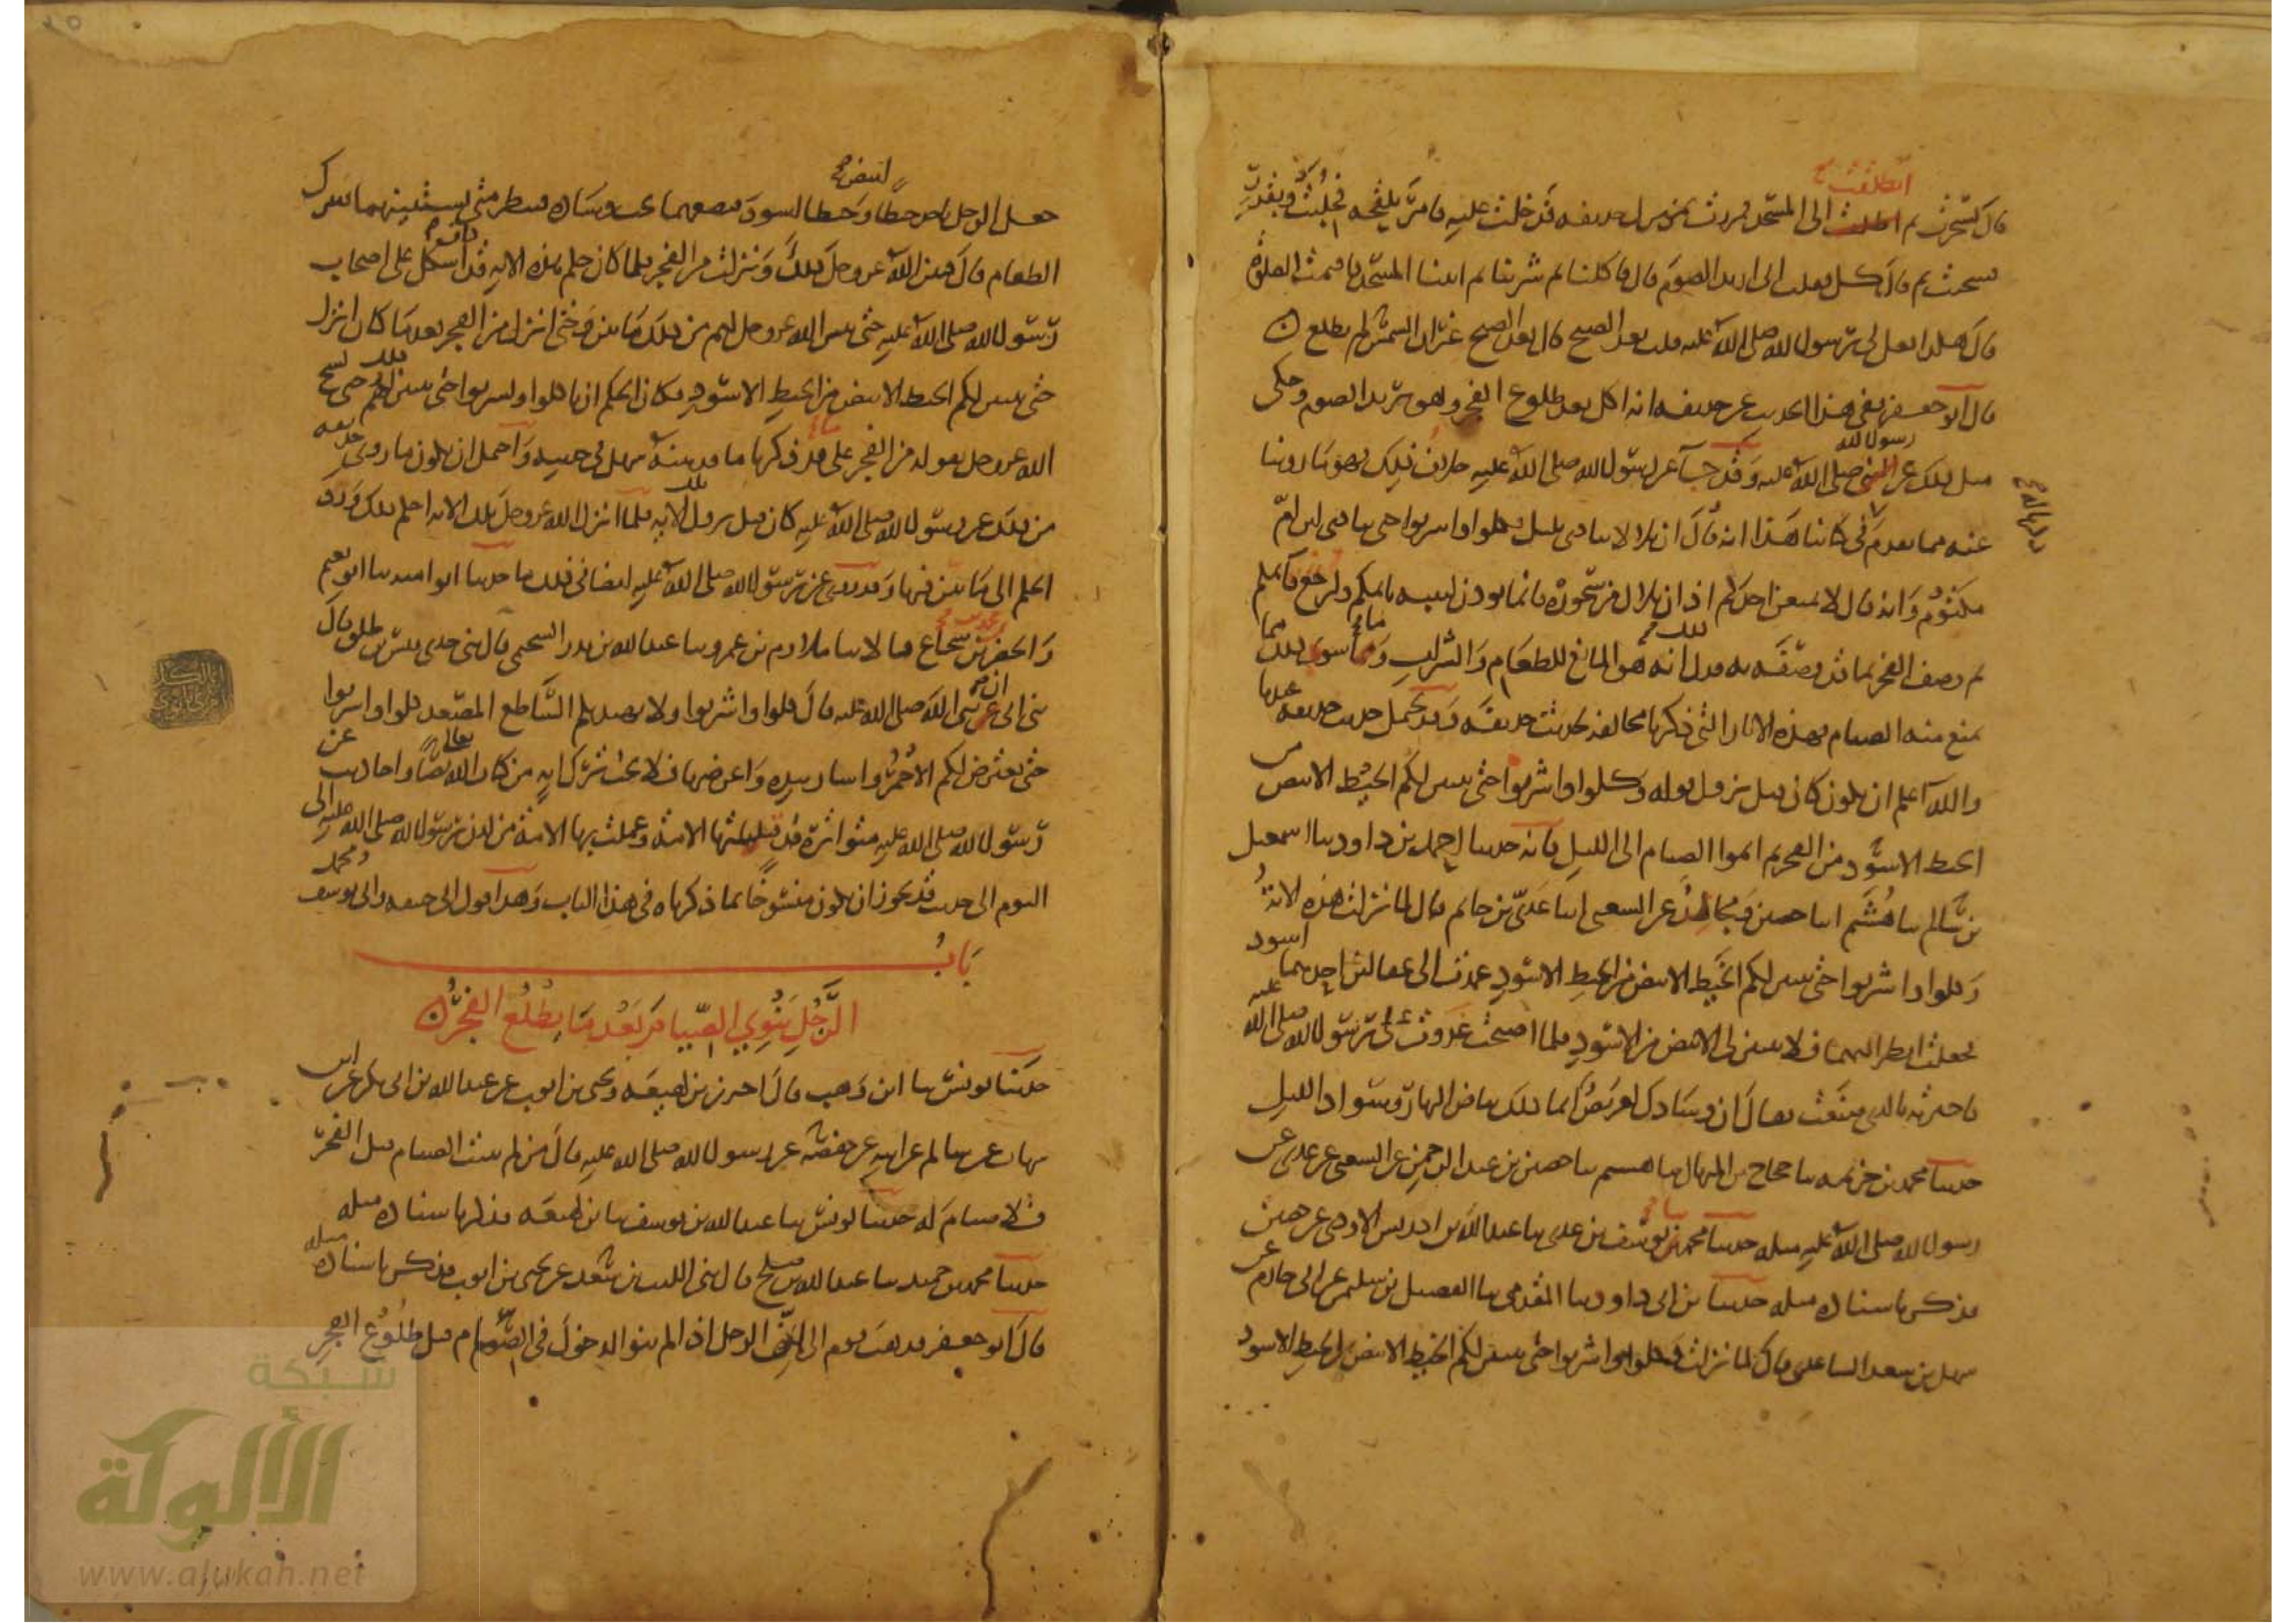 انطلقت
قال تسحرت ثم انطلقت الى المسجد فمررت بمنزل حذيفة فدخلت عليه فامر بلقحة فحلبت وبقدر
فسخنت ثم قال كل فقلت انى اريد الصوم قال وانا فاكلنا ثم شربنا ثم اتينا المسجد فاقيمت الصلوة
قال هكذا فعل بى رسول الله صلى الله عليه قلت بعد الصبح قال بعد الصبح غير ان الشمس لم تطلع
قال ابو جعفر ففى هذا الحديث عن حذيفة انه اكل بعد طلوع الفجر وهو يريد الصوم وحكى
رسول الله
مثل ذلك عن النبى صلى الله عليه وقد جآ عن رسول الله صلى الله عليه خلاف ذلك فهو ما روينا
عنه مما تقدم فى كتابنا هذا انه قال ان بلالا ينادى بليل فكلوا واشربوا حتى ينادى ابن ام
مكتوم وانه قال لا يمنعن احدكم اذان بلال من سحوره فانما يوذن لينبه نايمكم وليرجع قايمكم
ثم وصف الفجر بما قد وصفه به فدل انه هو المانع للطعام والشراب وما سوى ذلك مما
يمنع منه الصيام فهذه الاثار التى ذكرنا مخالفة لحديث حذيفة وقد يحتمل حديث حذيفة عندنا
والله اعلم ان يكون كان قبل نزول قوله وكلوا واشربوا حتى يتبين لكم الخيط الابيض من
الخيط الاسود من الفجر ثم اتموا الصيام الى الليل فانه حدثنا احمد بن داود ثنا اسمعيل
بن سالم ثنا هشيم انا حصين ومجالد عن الشعبى انا عدى بن حاتم قال لما نزلت هذه الاية
وكلوا واشربوا حتى يتبين لكم الخيط الابيض من الخيط الاسود عمدت الى عقالين احدهما اسود
فجعلت انظر اليهما فلا يتبين لى الابيض من الاسود فلما اصبحت غدوت على رسول الله صلى الله عليه
فاخبرته بالذى صنعت فقال ان وسادك لعريض انما ذلك بياض النهار وسواد الليل
حدثنا محمد بن خزيمة ثنا حجاج بن المنهال ثنا هشيم ثنا حصين بن عبد الرحمن عن الشعبى عن عدى عن
رسول الله صلى الله عليه مثله حدثنا محمد ثنا يوسف بن عدى ثنا عبد الله بن ادريس الاودى عن حصين
فذكر باسناده مثله حدثنا بن ابى داود ثنا المقدمى ثنا الفضيل بن سليمن عن ابى حازم عن
سهل بن سعد الساعدى قال لما نزلت وكلوا واشربوا حتى يتبين لكم الخيط الابيض من الخيط الاسود
ابيض
جعل الرجل ياخذ خيطا وخيطا اسود فيضعهما تحت وساده فينظر متى يستبينهما فيترك
الطعام قال فبين الله عز وجل ذلك ونزلت من الفجر فلما كان حكم هذه الاية قد اشكل على اصحاب
رسول الله صلى الله عليه حتى بين الله عز وجل لهم من ذلك ما بين وحتى انزل من الفجر بعد ما كان انزل
حتى يتبين لكم الخيط الابيض من الخيط الاسود فكان الحكم ان ياكلوا ويشربوا حتى يتبين لهم ذلك حتى نسخ
الله عز وجل بقوله من الفجر على ما ذكرنا ما قد بينه سهل فى حديثه واحتمل ان يكون ما روى حذيفة
من ذلك عن رسول الله صلى الله عليه كان قبل نزول تلك الاية فلما انزل الله عز وجل تلك الاية احكم ذلك ورد
الحكم الى ما بين فيها وقد روى عن رسول الله صلى الله عليه ايضا فى ذلك ما حدثنا ابو امية ثنا ابو نعيم
والخضر بن شجاع قالا ثنا ملازم بن عمرو ثنا عبد الله بن بدر السحيمى قال ثنى جدى قيس بن طلق قال
ثنى ابى ان نبى الله صلى الله عليه قال كلوا واشربوا ولا يهيدنكم الساطع المصعد كلوا واشربوا
حتى يعترض لكم الاحمر واشار بيده واعرضها فلا يجب ترك اية من كتاب الله تعالى نصا واحاديث عن
رسول الله صلى الله عليه متواترة قد قبلتها الامة وعملت بها الامة من لدن رسول الله صلى الله عليه الى
اليوم الى حديث قد يجوز ان يكون منسوخا بما ذكرناه فى هذا الباب وهذا قول ابى حنيفة وابى يوسف ومحمد
باب
الرجل ينوى الصيام بعد ما يطلع الفجر
حدثنا يونس ثنا ابن وهب قال اخبرنى بن لهيعة ويحيى بن ايوب عن عبد الله بن ابى بكر عن ابن
شهاب عن سالم عن ابيه عن حفصة عن رسول الله صلى الله عليه قال من لم يبيت الصيام قبل الفجر
فلا صيام له حدثنا يونس ثنا عبد الله بن يوسف ثنا بن لهيعة فذكر باسناده مثله
حدثنا محمد بن حميد ثنا عبد الله بن صالح قال ثنى الليث بن سعد عن يحيى بن ايوب فذكر باسناده مثله
قال ابو جعفر فذهب قوم الى ان الرجل اذا لم ينو الدخول فى الصيام قبل طلوع الفجر
شبكة
الألوكة
www.alukah.net